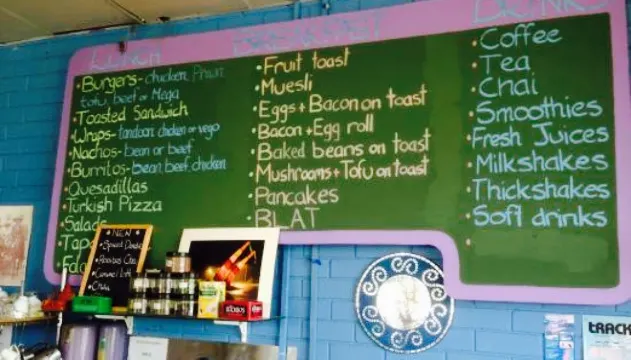 LUNCH
•Burgers- chicken, Prawn
tofu, beef or Mega
•Toasted Sandwich
•Wraps- tandoori chicken or vego
•Nachos- bean or beef
•Burritos- bean beef chicken
•Quesadillas
•Turkish Pizza
•Salads
BREAKFAST
•Fruit toast
•Muesli
•Eggs + Bacon on toast
•Bacon + Egg roll
•Baked beans on toast
•Mushrooms + Tofu on toast
•Pancakes
•BLAT
DRINKS
•Coffee
•Tea
•Chai
•Smoothies
•Fresh Juices
•Milkshakes
•Thickshakes
•Soft drinks
NEW